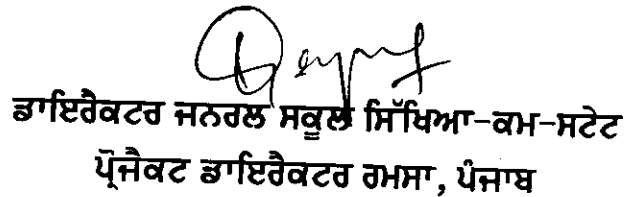 ਡਾਇਰੈਕਟਰ ਜਨਰਲ ਸਕੂਲ ਸਿੱਖਿਆ-ਕਮ-ਸਟੇਟ
ਪ੍ਰੋਜੈਕਟ ਡਾਇਰੈਕਟਰ ਰਮਸਾ, ਪੰਜਾਬ